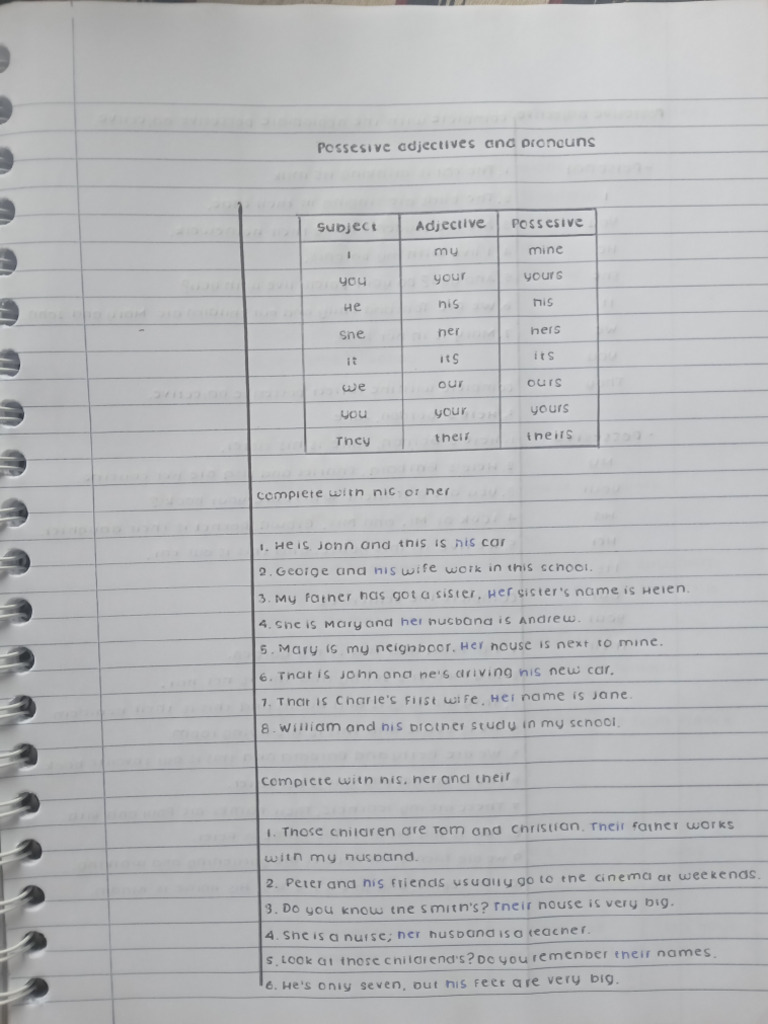 Possesive adjectives and pronouns
Subject Adjective Possesive
I my mine
you your yours
He his his
She her hers
it its its
we our ours
you your yours
They their theirs
complete with his or her
1. He is John and this is his car
2. George and his wife work in this school.
3. My father has got a sister. Her sister's name is Helen.
4. She is Mary and her husband is Andrew.
5. Mary is my neighboor. Her house is next to mine.
6. That is John and he's driving his new car.
7. That is Charlie's first wife. Her name is Jane.
8. William and his brother study in my school.
complete with his, her and their
1. Those children are Tom and Christian. Their father works
with my husband.
2. Peter and his friends usually go to the cinema at weekends.
3. Do you know the Smith's? Their house is very big.
4. She is a nurse; her husband is a teacher.
5. Look at those childrend's? Do you remenber their names.
6. He's only seven, but his feet are very big.